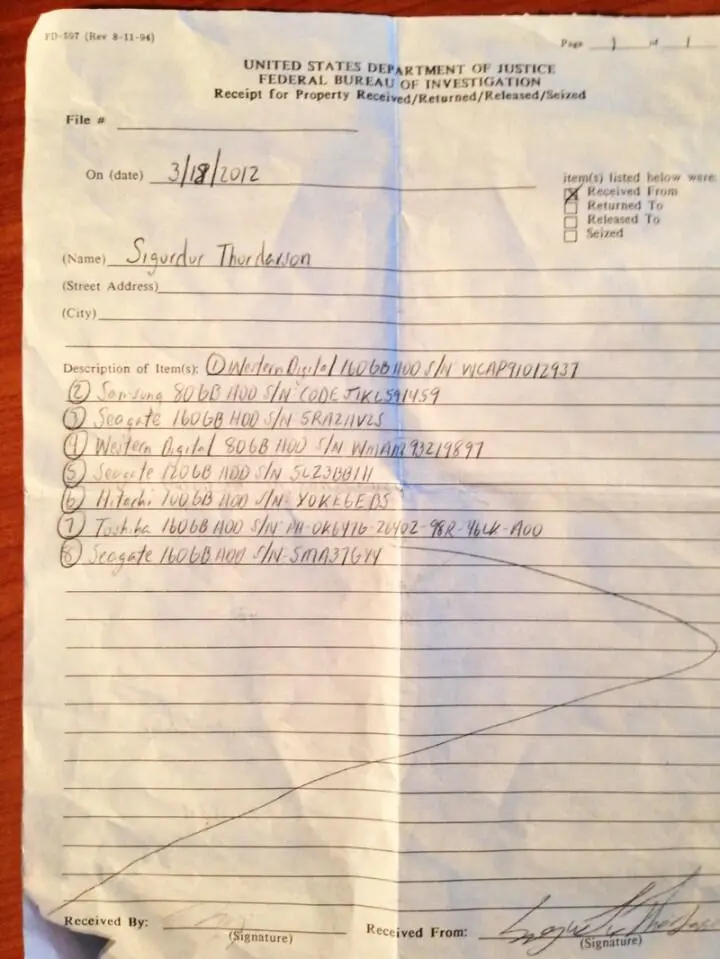 FD-597 (Rev 8-11-94)
Page 1 of 1
UNITED STATES DEPARTMENT OF JUSTICE
FEDERAL BUREAU OF INVESTIGATION
Receipt for Property Received/Returned/Released/Seized
File #
On (date) 3/18/2012
item(s) listed below were:
Received From
Returned To
Released To
Seized
(Name) Sigurdur Thordarson
(Street Address)
(City)
Description of Item(s): ① Western Digital 160GB HDD S/N WCAP91012937
② Samsung 80GB HDD S/N
③ Seagate 160GB HDD S/N 5RA2AV2S
④ Western Digital 80GB HDD S/N
⑤ Seagate 120GB HDD S/N
⑥ Hitachi HDD S/N
⑦ Toshiba 160GB HDD S/N
⑧ Seagate 160GB HDD S/N 5MA37GYY
Received By:
Received From:
(Signature)
(Signature)